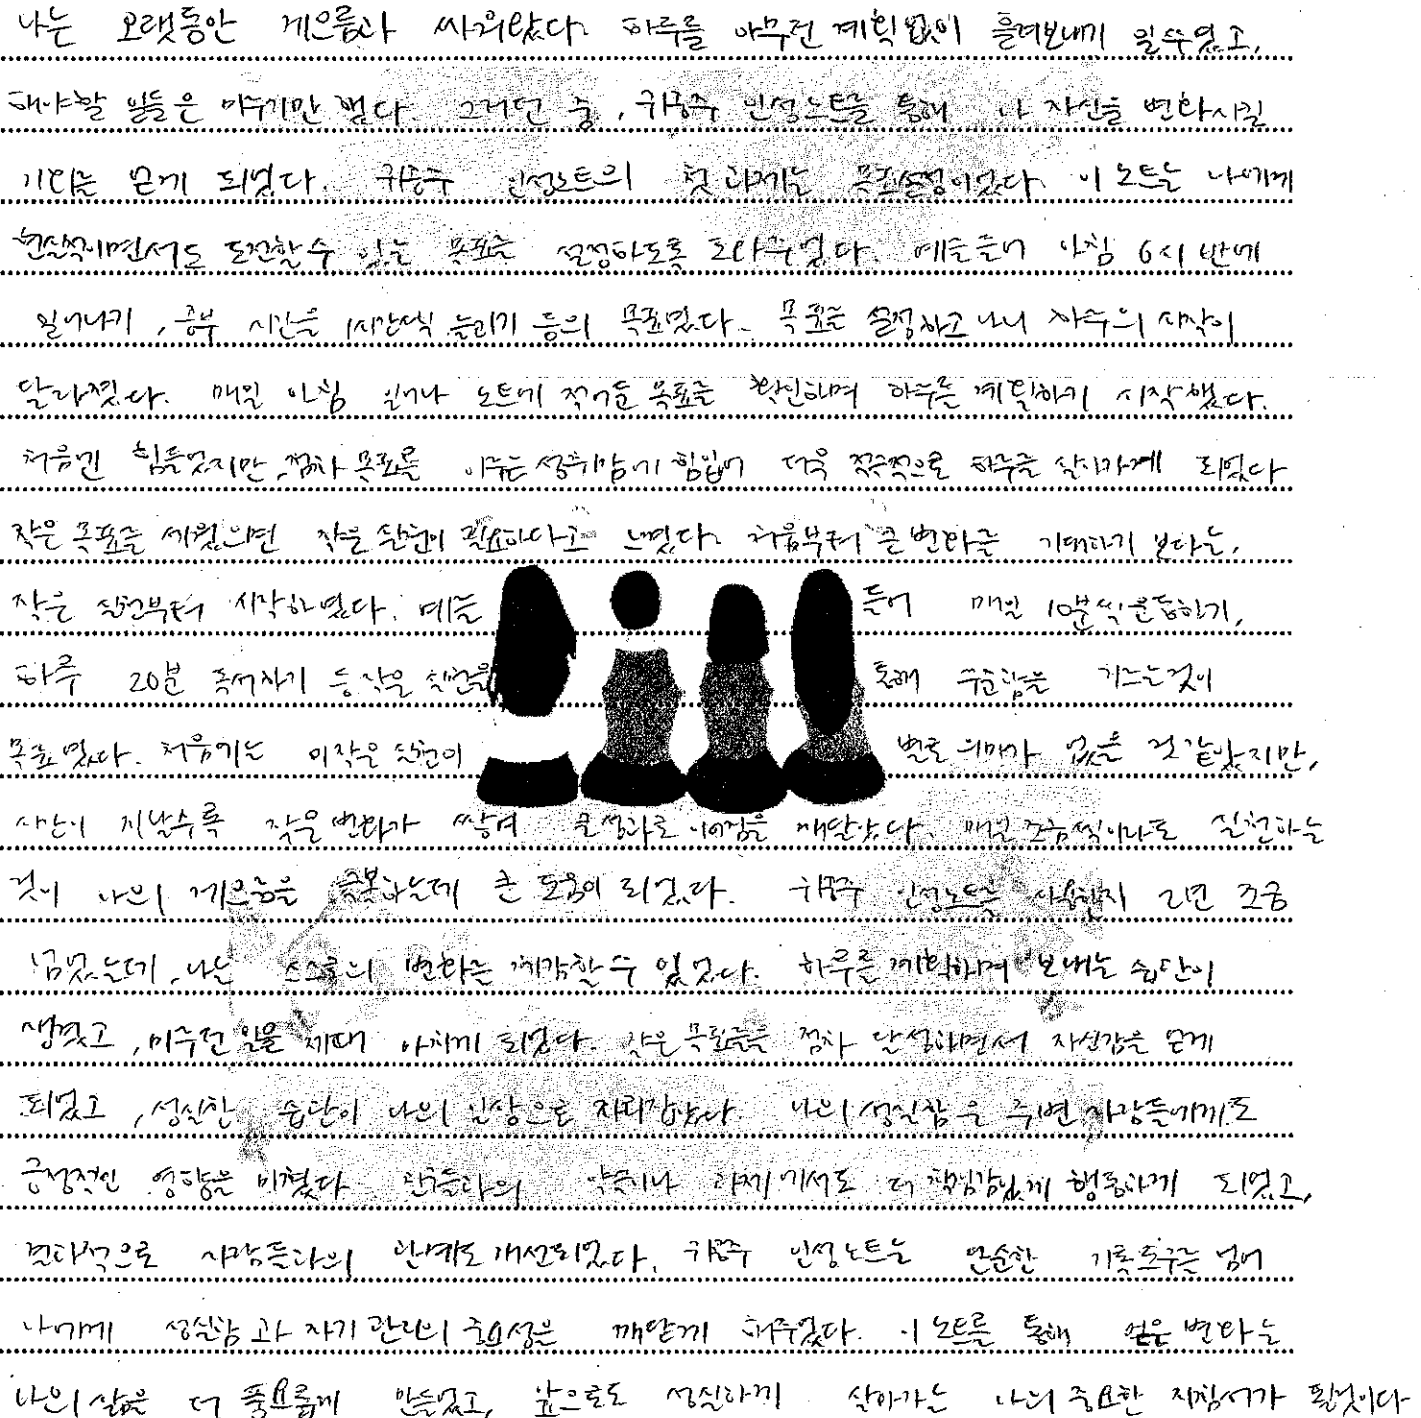 나는 오랫동안 게으름과 싸워왔다. 하루를 아무런 계획없이 흘려보내기 일쑤였고,
해야할 일들은 미루기만 했다 그러던 중, 귀공주 인성노트를 통해 나 자신을 변화시킬
기회를 얻게 되었다. 귀공주 인성노트의 첫 과제는 목표설정이었다. 이 노트는 나에게
현실적이면서도 도전할 수 있는 목표를 설정하도록 도와주었다. 예를들어 아침 6시 반에
일어나기, 공부 시간을 1시간씩 늘리기 등의 목표였다. 목표를 설정하고 나니 하루의 시작이
달라졌다. 매일 아침 일어나 노트에 적어둔 목표를 확인하며 하루를 계획하기 시작했다.
처음엔 힘들었지만, 점차 목표를 이루는 성취감에 힘입어 더욱 적극적으로 하루를 살아가게 되었다
작은 목표를 세웠으면 작은 실천이 필요하다고 느꼈다. 처음부터 큰 변화를 기대하기 보다는,
작은 실천부터 시작하였다. 예를 들어 매일 10분씩 운동하기,
하루 20분 독서하기 등 작은 실천을 통해 꾸준함을 기르는것이
목표였다. 처음에는 이작은 실천이 별로 의미가 없을 것 같았지만,
시간이 지날수록 작은 변화가 쌓여 큰 성과로 이어짐을 깨달았다. 매일 조금씩이라도 실천하는
것이 나의 게으름을 극복하는데 큰 도움이 되었다. 귀공주 인성노트를 사용한지 2년 조금
넘었는데, 나는 스스로의 변화를 체감할 수 있었다. 하루를 계획하며 보내는 습관이
생겼고, 미루던 일을 제때 마치게 되었다. 작은 목표들을 점차 달성하면서 자신감을 얻게
되었고, 성실한 습관이 나의 일상으로 자리잡았다. 나의 성실함은 주변 사람들에게도
긍정적인 영향을 미쳤다 친구들과의 약속이나 과제에서도 더 책임감있게 행동하게 되었고,
결과적으로 사람들과의 관계도 개선되었다. 귀공주 인성노트는 단순한 기록도구를 넘어
나에게 성실함과 자기 관리의 중요성을 깨닫게 해주었다. 이 노트를 통해 얻은 변화는
나의 삶을 더 풍요롭게 만들었고, 앞으로도 성실하게 살아가는 나의 중요한 지침서가 될것이다